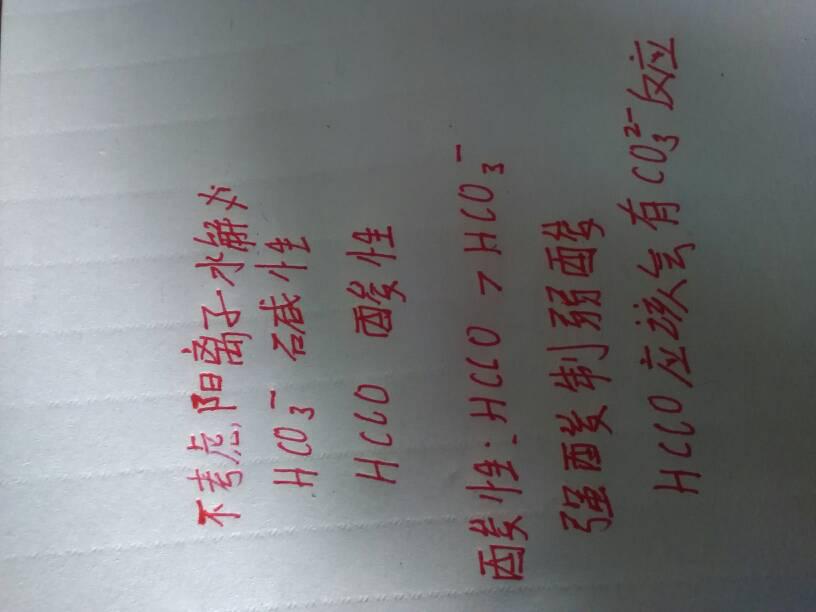 不考虑阳离子水解
HCO₃⁻ 碱性
HClO 酸性
酸性:HClO > HCO₃⁻
强酸制弱酸
HClO应该会有CO₃²⁻反应